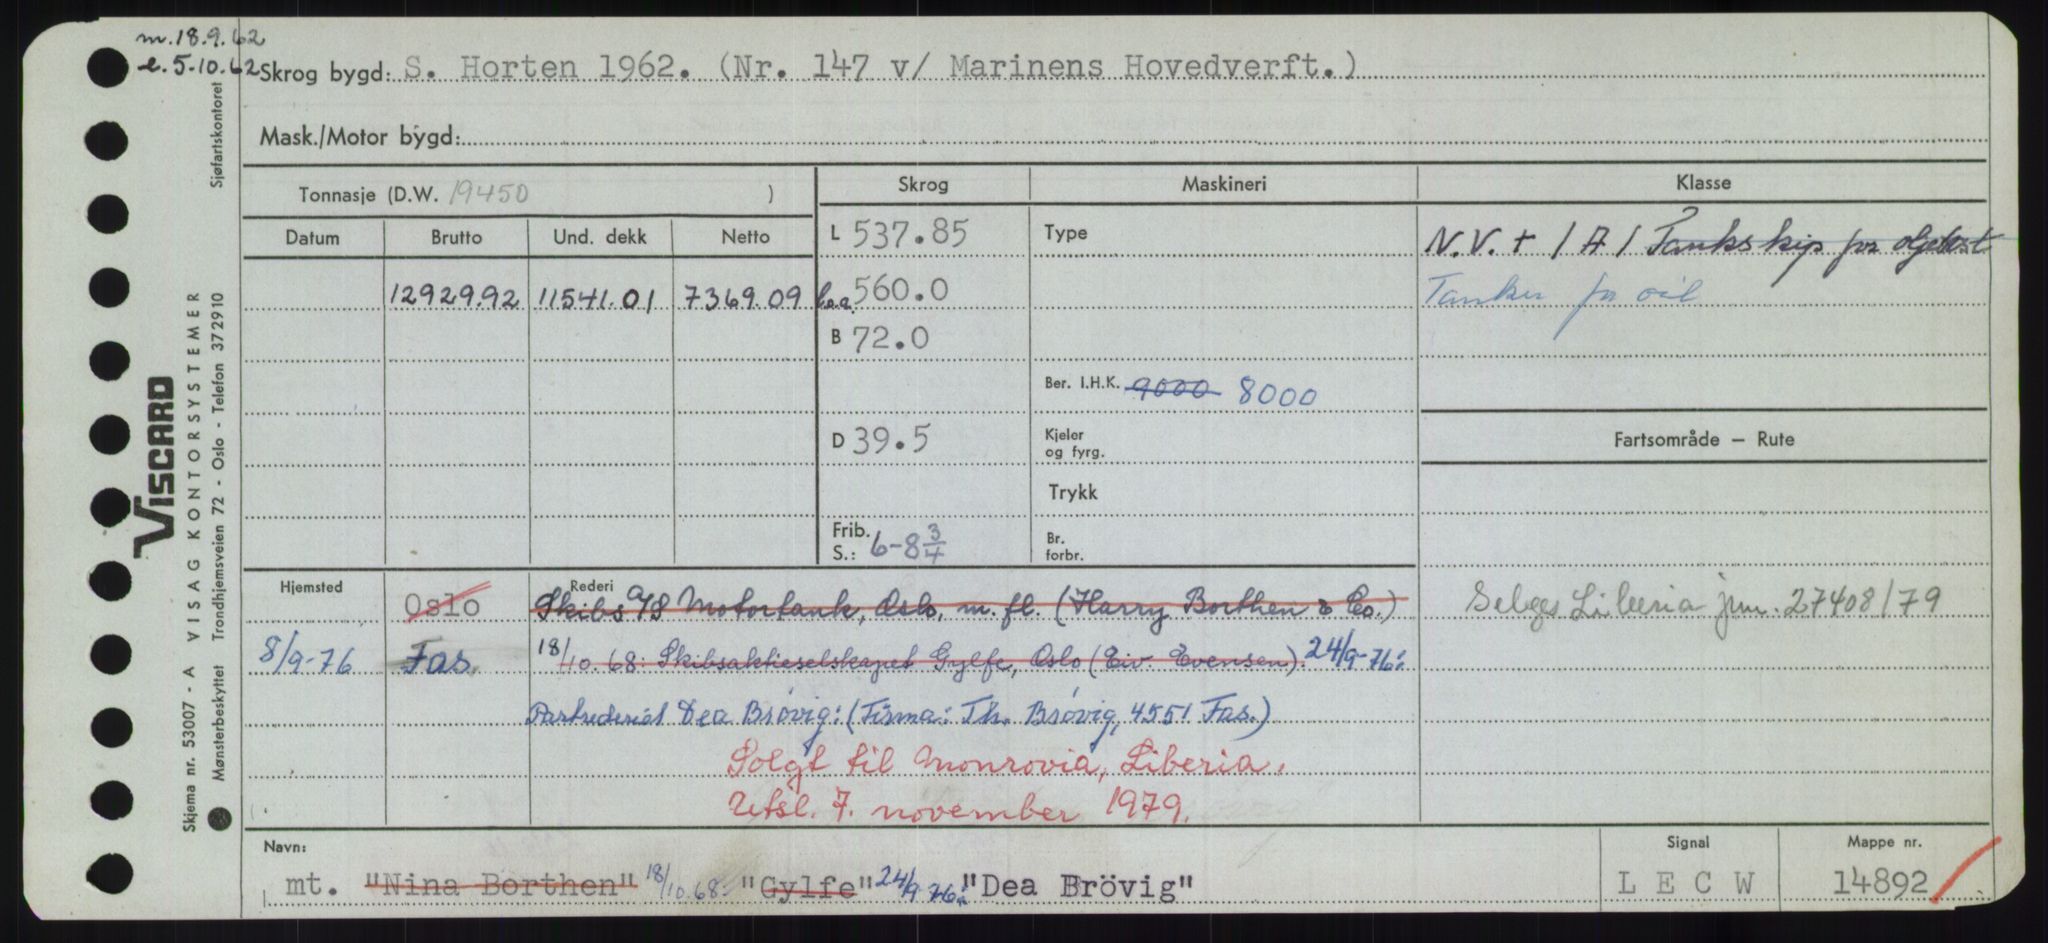 m. 18.9.62
e. 5-10.62
Skrog bygd: S. Horten 1962. (Nr. 147 v/ Marinens Hovedverft.)
Mask./Motor bygd:
Tonnasje (D.W. 19450 )
Skrog
Maskineri
Klasse
Datum
Brutto
Und. dekk
Netto
L 537.85
Type
N.V. + 1 A 1 Tankskip for oljelast
12929.92
11541.01
7369.09
l.o.a. 560.0
Tanker for oil
B 72.0
Ber. I.H.K. 9000 8000
D 39.5
Kjeler
og fyrg.
Fartsområde — Rute
Trykk
Frib.
S.: 6-8 3/4
Br.
forbr.
Hjemsted
Oslo
Rederi
Skibs A/S Motortank, Oslo, m. fl. (Harry Borthen & Co.)
Selges Liberia jnr. 27408/79
8/9-76
Fas.
18/10.68: Skibsaktieselskapet Gylfe, Oslo (Eiv. Evensen). 24/9-76:
Partrederiet Dea Brövig: (Firma: Th. Brövig, 4551 Fas.)
Solgt til Monrovia, Liberia.
Utsl. 7. november 1979.
Navn:
mt. "Nina Borthen" 18/10.68: "Gylfe" 24/9-76: "Dea Brövig"
Signal
L E C W
Mappe nr.
14892
VISCARD
Skjema nr. 53007 - A VISAG KONTORSYSTEMER
Mønsterbeskyttet Trondhjemsveien 72 - Oslo - Telefon 372910 Sjøfartskontoret